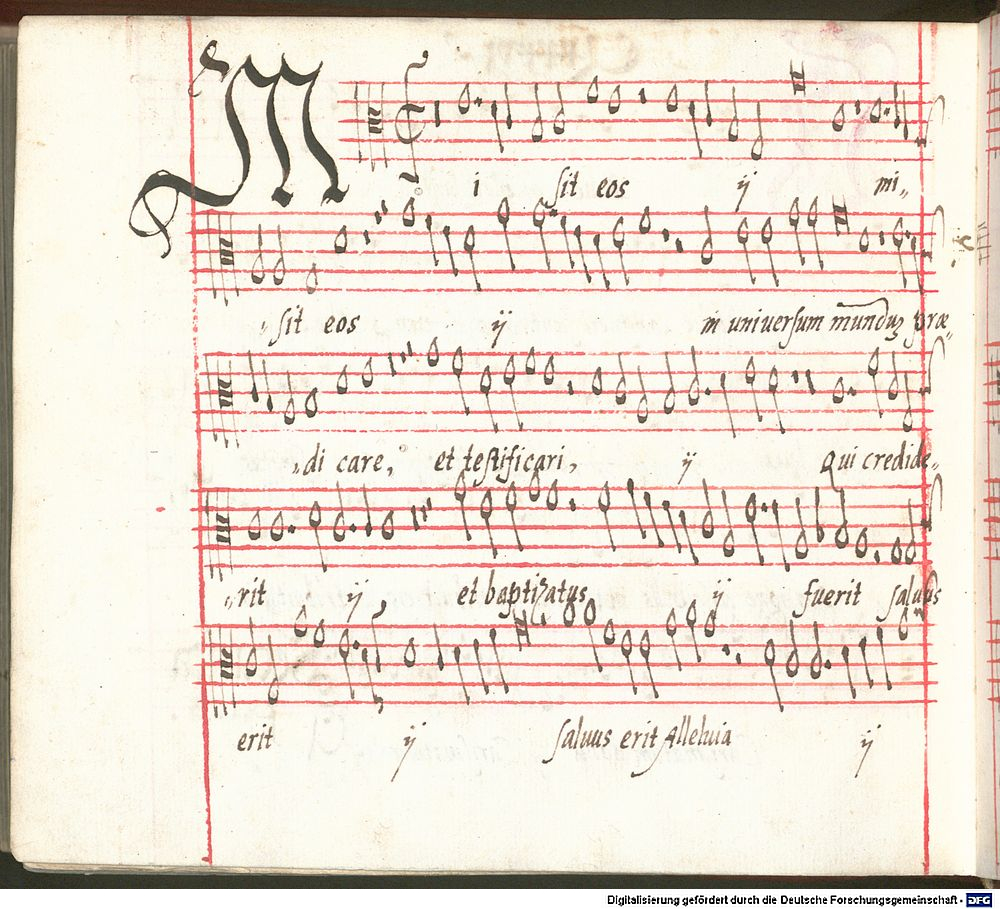 M
i sit eos ij mi„
„sit eos ij in uniuersum munduȝ præ„
„di care, et testificari, ij Qui credide„
„rit ij, et baptizatus, ij fuerit saluus
erit ij saluus erit Alleluia ij
Digitalisierung gefördert durch die Deutsche Forschungsgemeinschaft - DFG